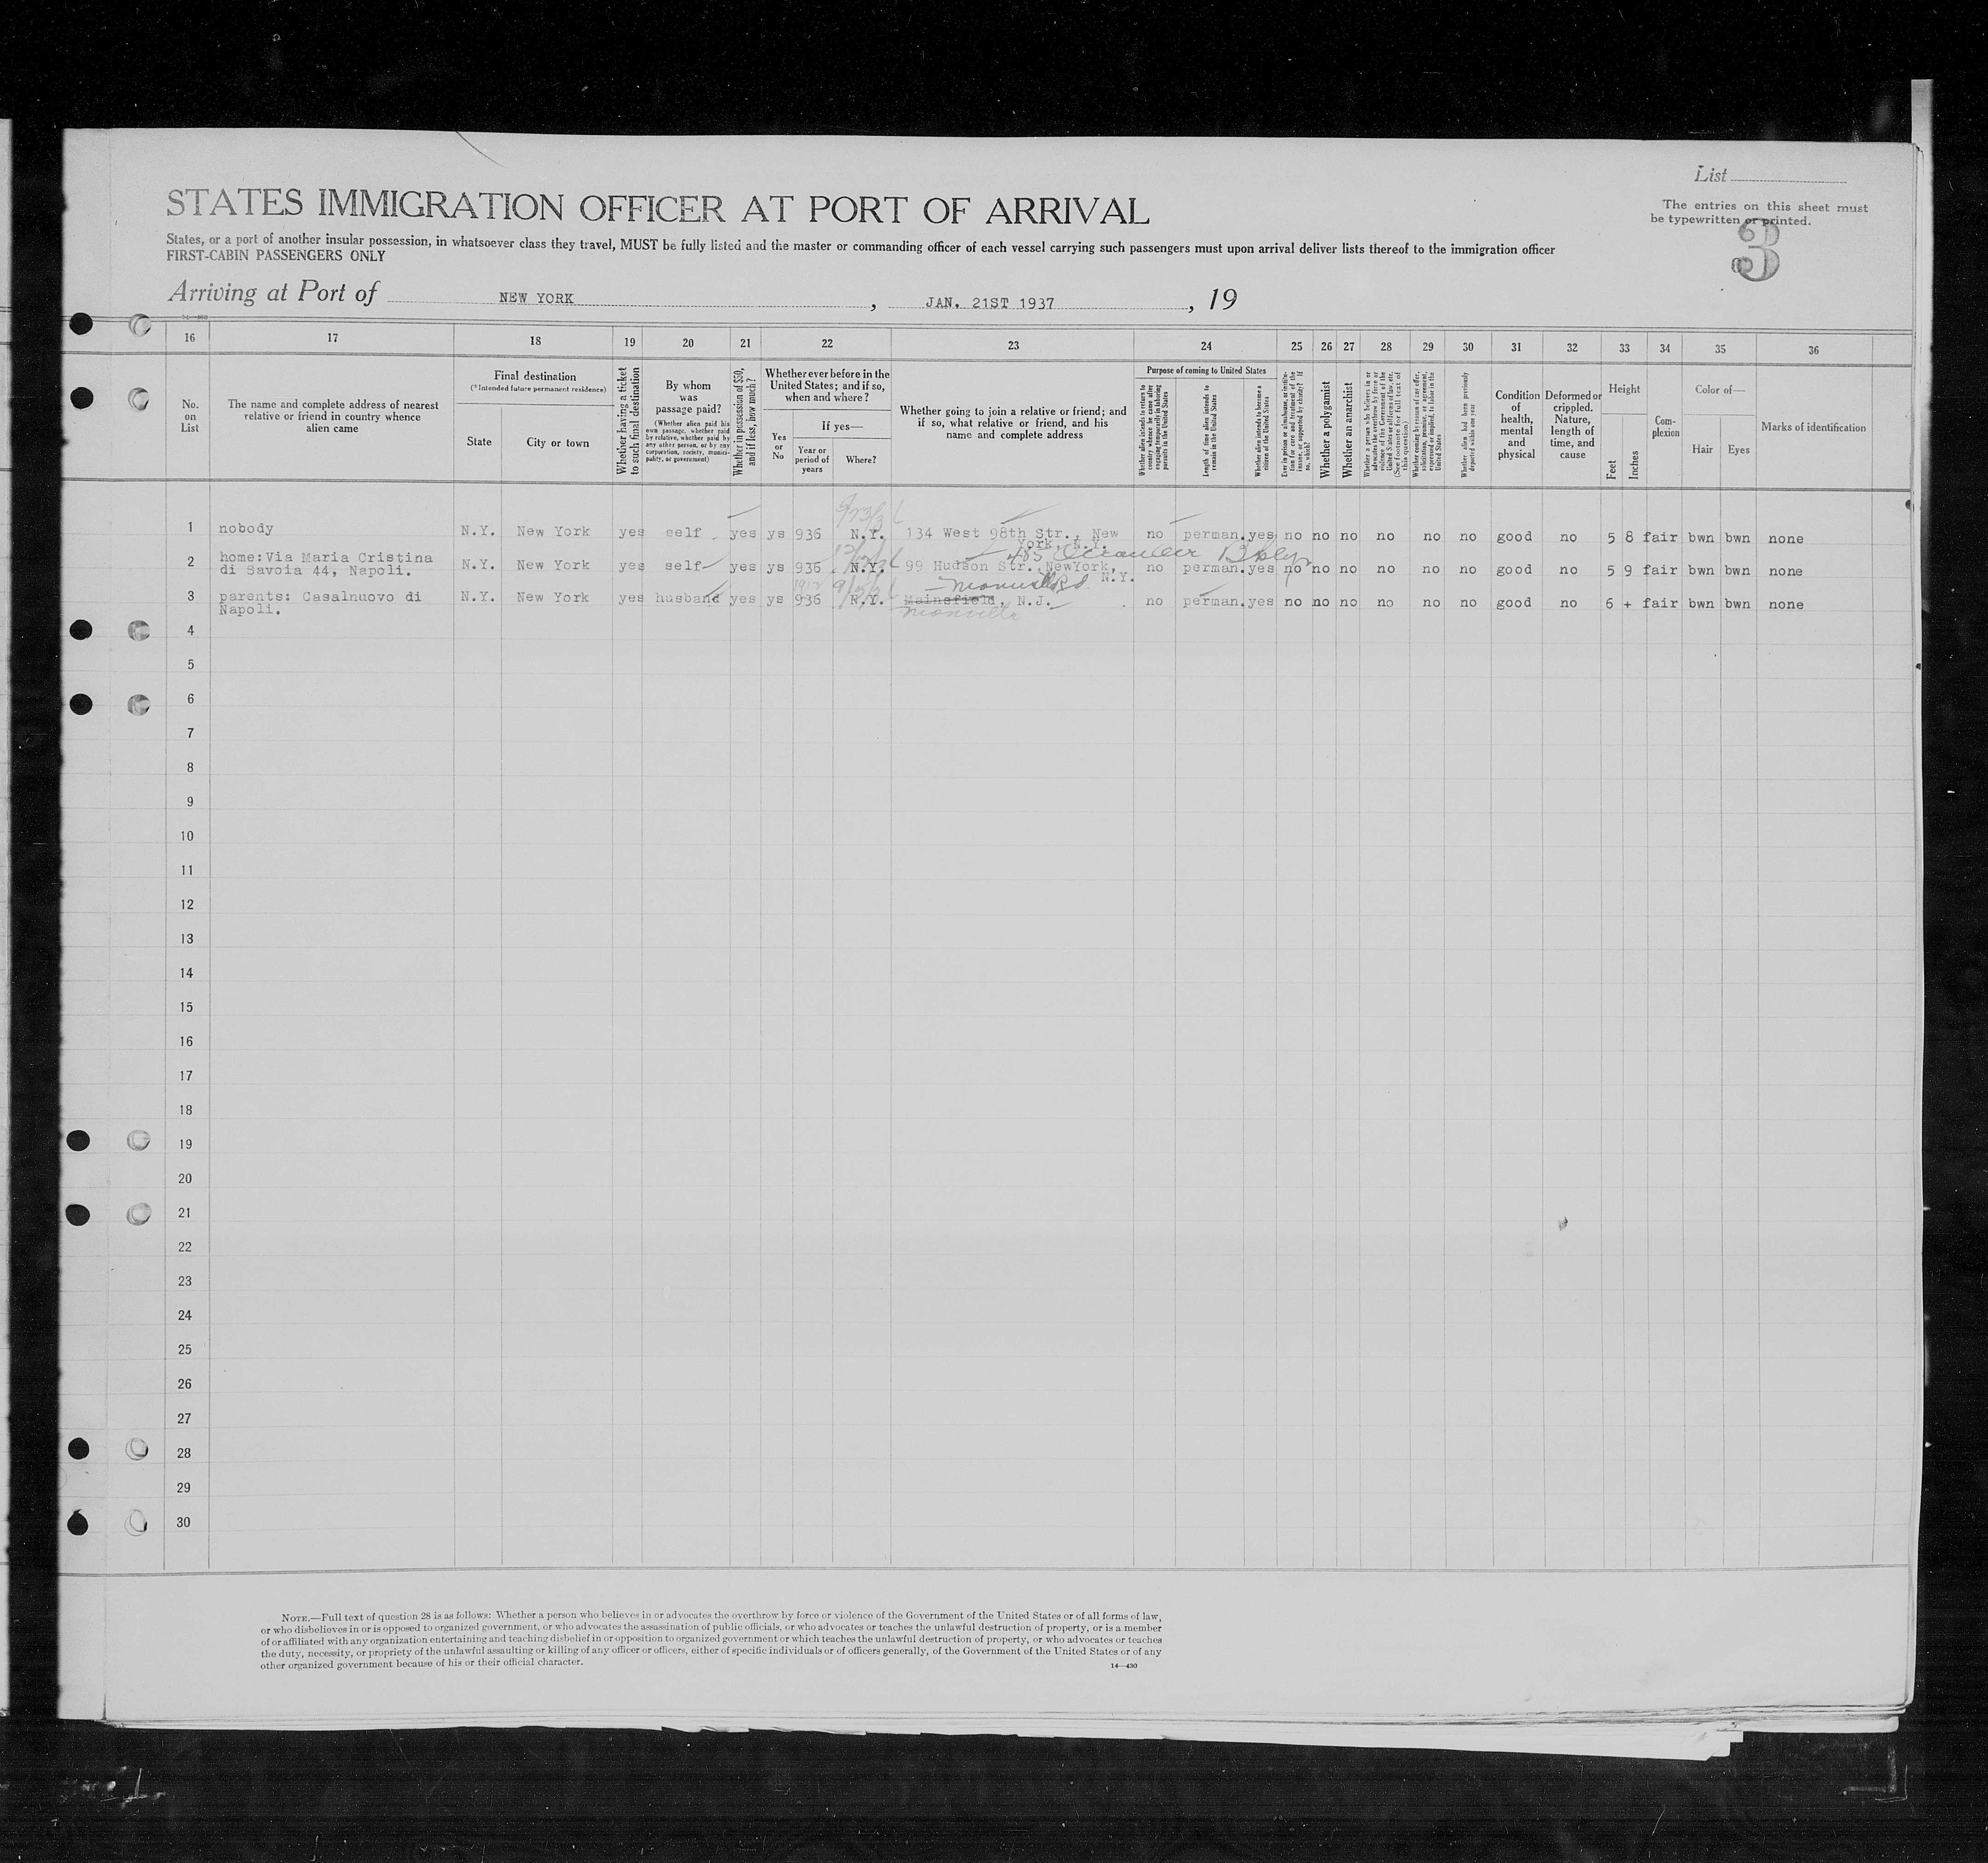 List
STATES IMMIGRATION OFFICER AT PORT OF ARRIVAL
The entries on this sheet must
be typewritten or printed.
3
States, or a port of another insular possession, in whatsoever class they travel, MUST be fully listed and the master or commanding officer of each vessel carrying such passengers must upon arrival deliver lists thereof to the immigration officer
FIRST-CABIN PASSENGERS ONLY
Arriving at Port of NEW YORK, JAN. 21ST 1937, 19
16 17 18 19 20 21 22 23 24 25 26 27 28 29 30 31 32 33 34 35 36
No.
on
List
The name and complete address of nearest
relative or friend in country whence
alien came
Final destination
(*Intended future permanent residence)
State
City or town
Whether having a ticket
to such final destination
By whom
was
passage paid?
(Whether alien paid his
own passage, whether paid
by relative, whether paid by
any other person, or by any
corporation, society, munici-
pality, or government)
Whether in possession of $50,
and if less, how much?
Whether ever before in the
United States; and if so,
when and where?
Yes
or
No
If yes—
Year or
period of
years
Where?
Whether going to join a relative or friend; and
if so, what relative or friend, and his
name and complete address
Purpose of coming to United States
Whether alien intends to return to
country whence he came after
engaging temporarily in laboring
pursuits in the United States
Length of time alien intends to
remain in the United States
Whether alien intends to become a
citizen of the United States
Ever in prison or almshouse, or institu-
tion for care and treatment of the
insane, or supported by charity? If
so, which?
Whether a polygamist
Whether an anarchist
Whether a person who believes in or
advocates the overthrow by force or
violence of the Government of the
United States or all forms of law, etc.
(See footnote for full text of
this question)
Whether coming by reason of any offer,
solicitation, promise, or agreement,
expressed or implied, to labor in the
United States
Whether alien had been previously
deported within one year
Condition
of
health,
mental
and
physical
Deformed or
crippled.
Nature,
length of
time, and
cause
Height
Feet
Inches
Com-
plexion
Color of—
Hair
Eyes
Marks of identification
1 nobody N.Y. New York yes self yes ys 936 N.Y. 134 West 98th Str., New no perman. yes no no no no no no good no 5 8 fair bwn bwn none
York, N.Y.
home:Via Maria Cristina
2 di Savoia 44, Napoli. N.Y. New York yes self yes ys 936 N.Y. 99 Hudson Str., NewYork, no perman. yes no no no no no no good no 5 9 fair bwn bwn none
N.Y.
1912
3 parents: Casalnuovo di N.Y. New York yes husband yes ys 936 N.Y. Mainsfield, N.J. no perman. yes no no no no no no good no 6 + fair bwn bwn none
Napoli. Manville
4
5
6
7
8
9
10
11
12
13
14
15
16
17
18
19
20
21
22
23
24
25
26
27
28
29
30
NOTE.—Full text of question 28 is as follows: Whether a person who believes in or advocates the overthrow by force or violence of the Government of the United States or of all forms of law,
or who disbelieves in or is opposed to organized government, or who advocates the assassination of public officials, or who advocates or teaches the unlawful destruction of property, or is a member
of or affiliated with any organization entertaining and teaching disbelief in or opposition to organized government or which teaches the unlawful destruction of property, or who advocates or teaches
the duty, necessity, or propriety of the unlawful assaulting or killing of any officer or officers, either of specific individuals or of officers generally, of the Government of the United States or of any
other organized government because of his or their official character.
14—430